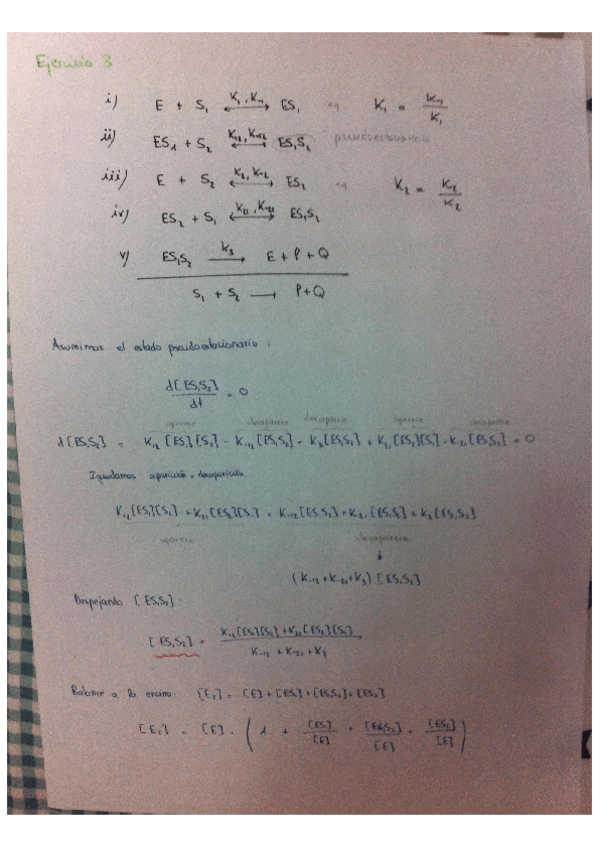 Ejercicio 3
i) E + S₁ ⟷ ES₁ eq K₁ = K₋₁ / K₁
K₁, K₋₁
ii) ES₁ + S₂ ⟷ ES₁S₂ pseudoestacionario
K₁₂, K₋₁₂
iii) E + S₂ ⟷ ES₂ eq K₂ = K₋₂ / K₂
K₂, K₋₂
iv) ES₂ + S₁ ⟷ ES₁S₂
K₂₁, K₋₂₁
v) ES₁S₂ ⟶ E + P + Q
K₃
S₁ + S₂ ⟶ P + Q
Asumimos el estado pseudoestacionario :
d[ES₁S₂] / dt = 0
aparece desaparece desaparece aparece desaparece
d[ES₁S₂] = K₁₂ [ES₁][S₂] - K₋₁₂[ES₁S₂] - K₃[ES₁S₂] + K₂₁[ES₂][S₁] - K₋₂₁[ES₁S₂] = 0
Igualamos aparición = desaparición
K₁₂[ES₁][S₂] + K₂₁[ES₂][S₁] = K₋₁₂[ES₁S₂] + K₋₂₁[ES₁S₂] + K₃[ES₁S₂]
aparece desaparece
(K₋₁₂ + K₋₂₁ + K₃) [ES₁S₂]
Despejando [ES₁S₂] :
[ES₁S₂] = K₁₂[ES₁][S₂] + K₂₁[ES₂][S₁] / K₋₁₂ + K₋₂₁ + K₃
Balance a la enzima: [E_T] = [E] + [ES₁] + [ES₁S₂] + [ES₂]
[E_T] = [E] · ( 1 + [ES₁]/[E] + [ES₁S₂]/[E] + [ES₂]/[E] )